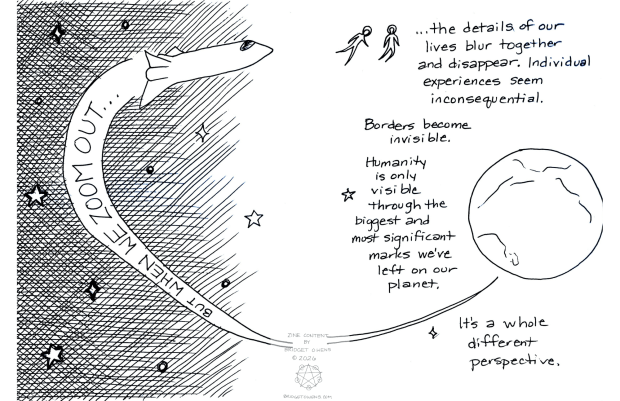 BUT WHEN WE ZOOM OUT...
...the details of our
lives blur together
and disappear. Individual
experiences seem
inconsequential.
Borders become
invisible.
Humanity
is only
visible
through the
biggest and
most significant
marks we've
left on our
planet.
It's a whole
different
perspective.
ZINE CONTENT
BY
BRIDGET OWENS
© 2026
BRIDGETOWENS.COM